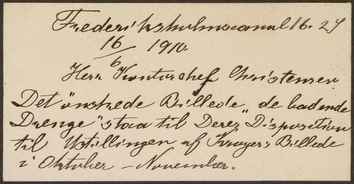 Frederiksholmscanal 16. 2 S
16/6 1910
Herr Kontorchef Christensen
Det ønskede Billede „de badende
Drenge" staar til Deres Disposition
til Udstillingen af Krøyers Billede
i Oktober - November.